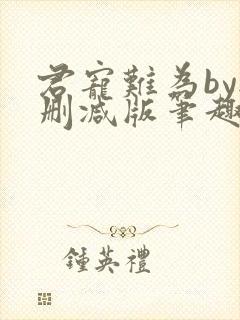 君寵難為by
刪减版筆趣
鍾英禮